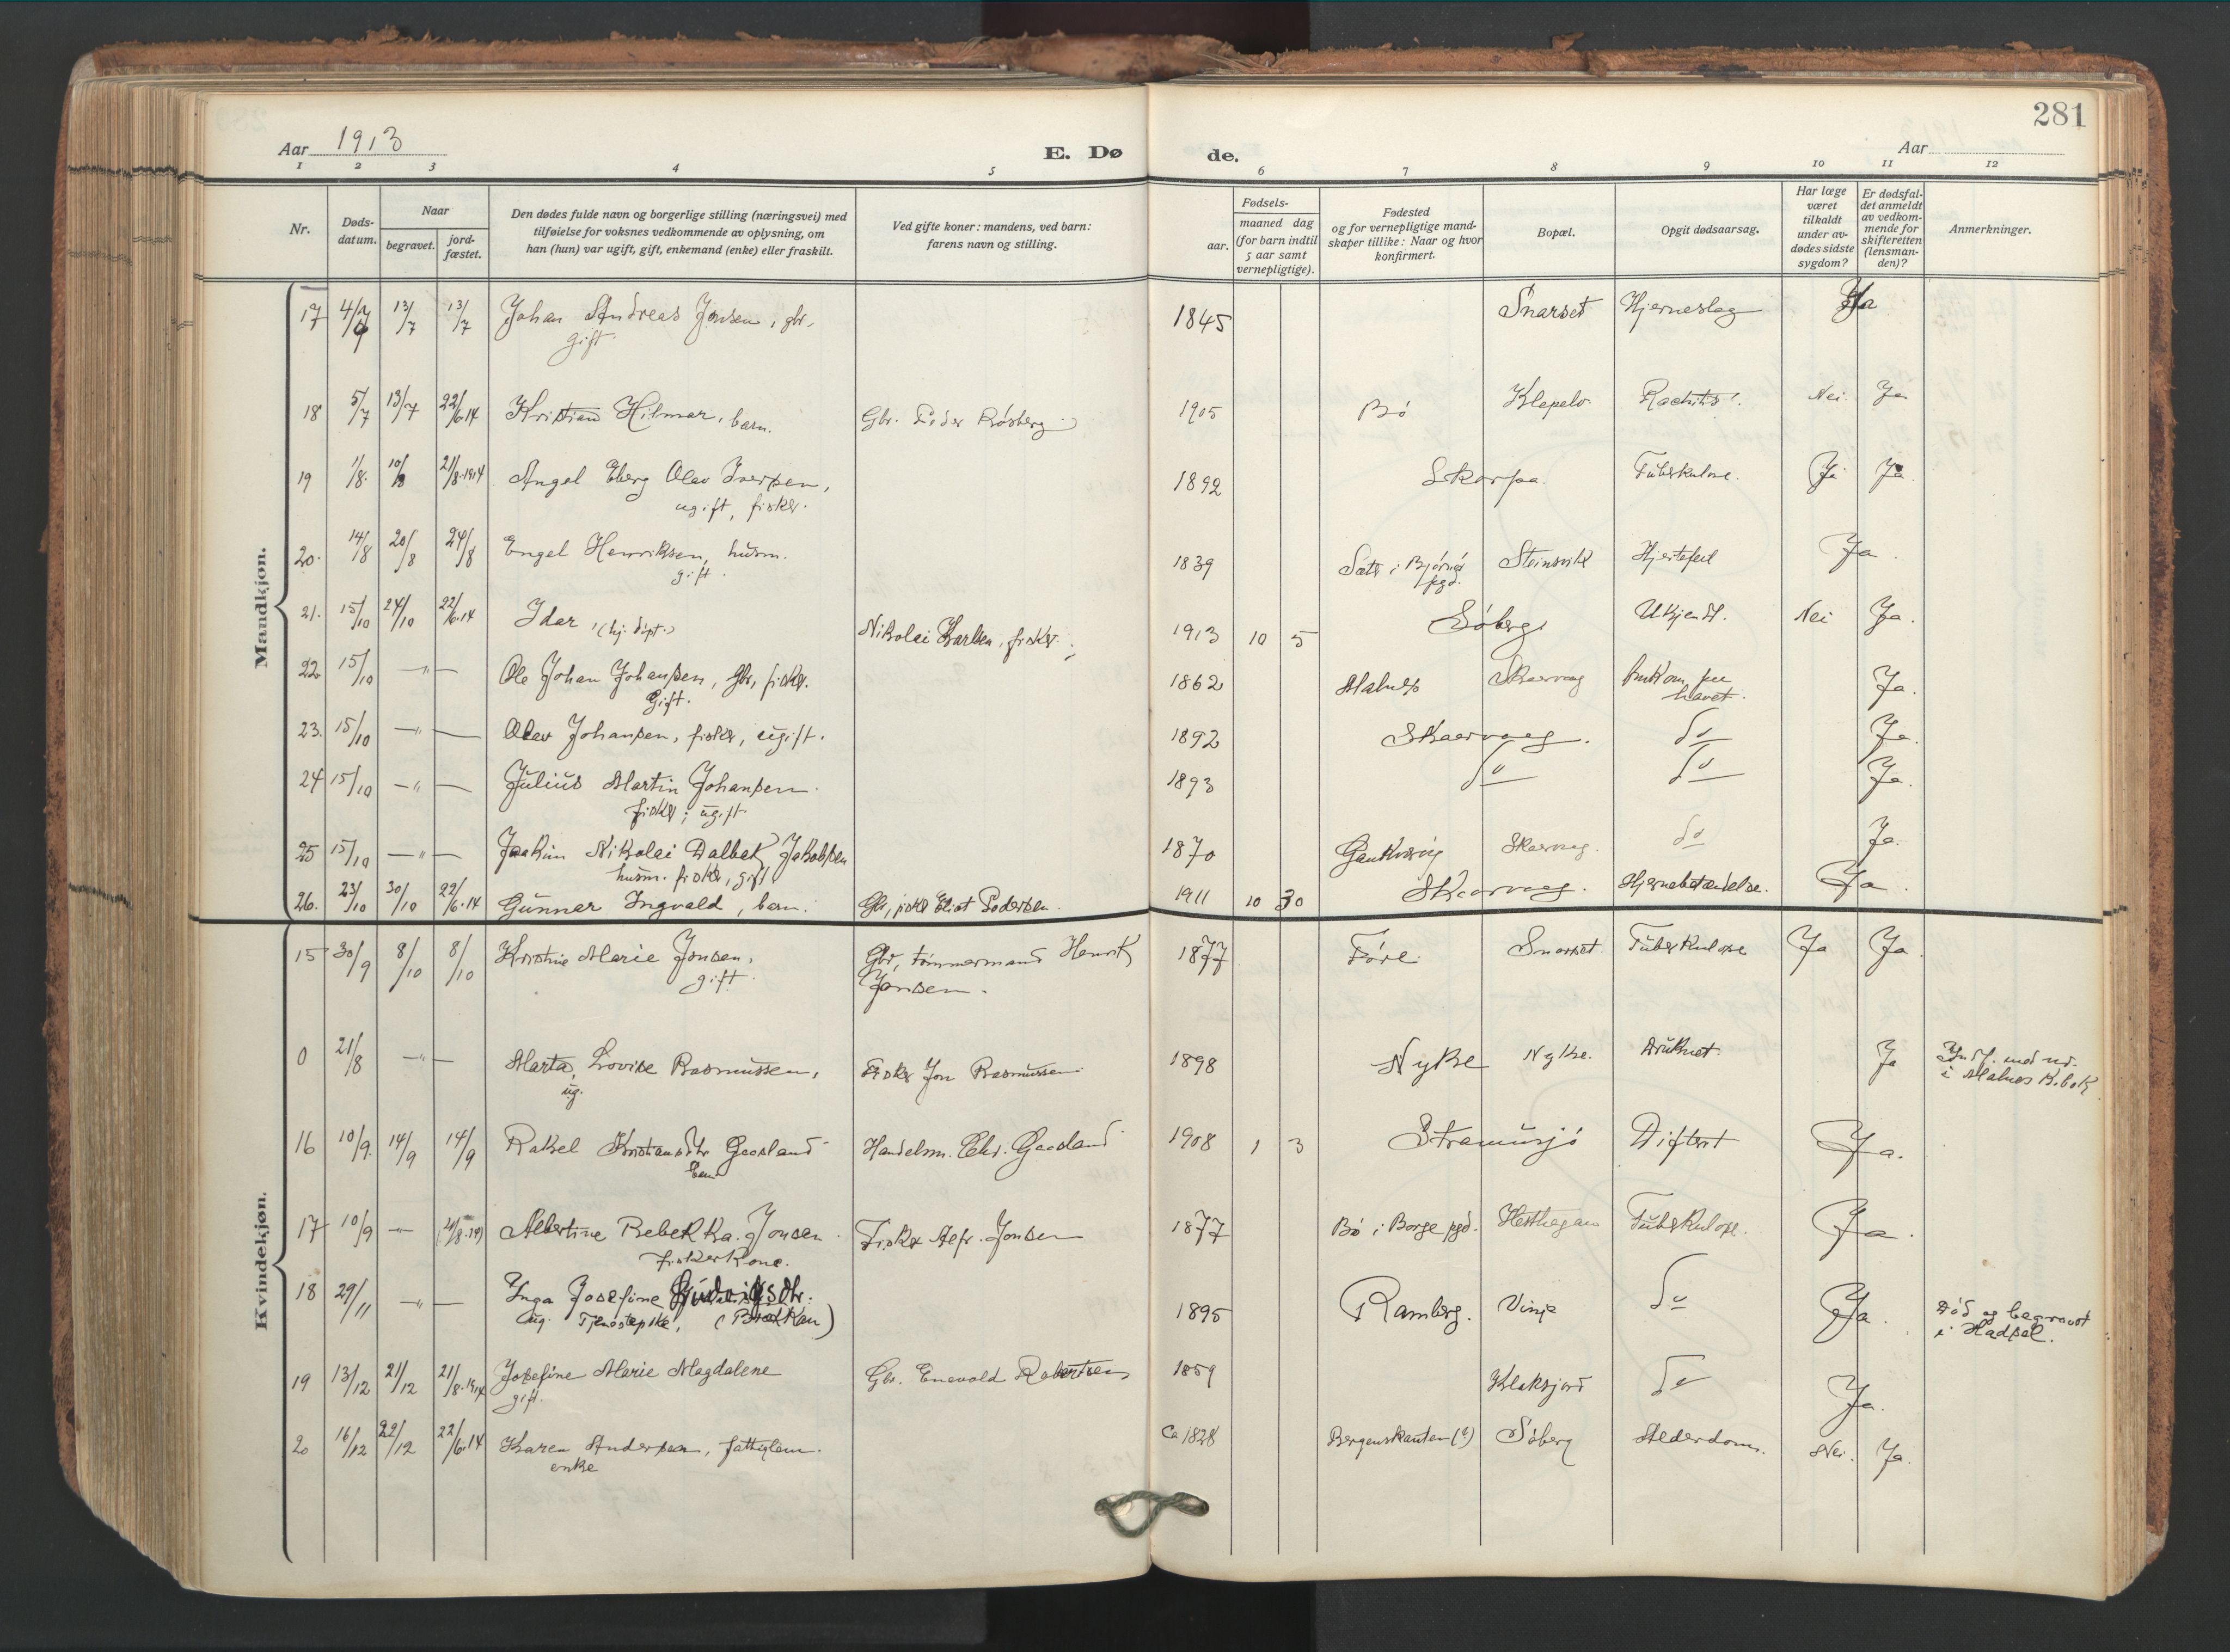 281
Aar 1913
E. Dø de.
Aar
1 2 3 4 5 6 7 8 9 10 11 12
Nr.
Døds-datum.
Naar
begravet.
jord-fæstet.
Den dødes fulde navn og borgerlige stilling (næringsvei) med
tilføielse for voksnes vedkommende av oplysning, om
han (hun) var ugift, gift, enkemand (enke) eller fraskilt.
Ved gifte koner: mandens, ved barn:
farens navn og stilling.
Fødsels-
aar.
maaned dag
(for barn indtil
5 aar samt
vernepligtige).
Fødested
og for vernepligtige mand-
skaper tillike: Naar og hvor
konfirmert.
Bopæl.
Opgit dødsaarsag.
Har læge
været
tilkaldt
under av-
dødes sidste
sygdom?
Er dødsfal-
det anmeldt
av vedkom-
mende for
skifteretten
(lensman-
den)?
Anmerkninger.
Mandkjøn.
17 4/7 13/7 13/7 Johan Andreas Jonsen, gbr, 1845 Snarset Hjerneslag Ja
gift
18 5/7 13/7 22/6.14 Kristian Hilmar, barn. Gbr. Peder Røsberg 1905 Bø Klepelv Rachitis. Nei. Ja
19 1/8 10/8 21/8.1914 Angel Eberg Olav Iversen, 1892 Skarpa. Tuberkulose. Ja Ja
ugift, fisker.
20. 14/8 20/8 24/8 Engel Henriksen, husm. 1839 Sæter i Bjørnør Steinsvik Hjertefeil Ja.
gift. pgd.
21. 15/10 24/10 22/6.14 Idar, (hj. døpt.) Nikolai Karlsen, fisker. 1913 10 5 Søberg Ukjendt. Nei Ja.
22 15/10 —"— Ole Johan Johansen, gbr, fisker. 1862 Malnes Skaarvaag omkom paa Ja.
Gift. havet.
23. 15/10 —"— Olav Johansen, fisker, ugift. 1892 Skaarvaag. Do Ja.
24 15/10 —"— Julius Martin Johansen. 1893 Do Do Ja.
fisker; ugift
25 15/10 —"— Joakim Nikolai Dalbak Jakobsen 1870 Skaarvaag. Do Ja.
husm. fisker, gift
26. 23/10 30/10 22/6.14 Gunnar Ingvald, barn. Gbr, fisker Eliot Pedersen. 1911 10 30 Skaarvaag. Hjernebetændelse. Ja.
Kvindekjøn.
15 30/9 8/10 8/10 Kristine Marie Jonsen, Gbr, tømmermand Henrik 1877 Føre Snarset. Tuberkulose Ja Ja.
gift. Jonsen.
0 21/8 —"— Marta Lovise Rasmussen, Fisker Jon Rasmussen 1898 Nykse Nykse. Druknet. Ja Indf. med nr.
ug. i Malnes K.bok
16 10/9. 14/9 14/9 Rakel Kristiansdtr Gaasland Handelsm. Chr. Gaasland 1908 1 3 Straumsjø Difterit Ja.
barn
17 10/9 —"— (21/8.14) Albertine Rebekka Jonsen Fisker Alfr. Jonsen 1877 Bø i Borge pgd. Tuberkulose. Ja.
fiskerkone.
18 29/11 —"— Inga Josefine Ludvigsdtr. 1895 Ramberg. Vinje Do Ja. Død og begravet
ug. Tjenestepike, i Hadsel.
19 13/12 21/12 21/8.1914 Josefine Marie Magdalene Gbr. Enevold Robertsen 1859 Klaksjord Do Ja.
gift.
20 16/12 22/12 22/6.14 Karen Andersen, fattiglem. ca 1828 Bergenskanten (?) Søberg Alderdom. Nei. Ja.
enke